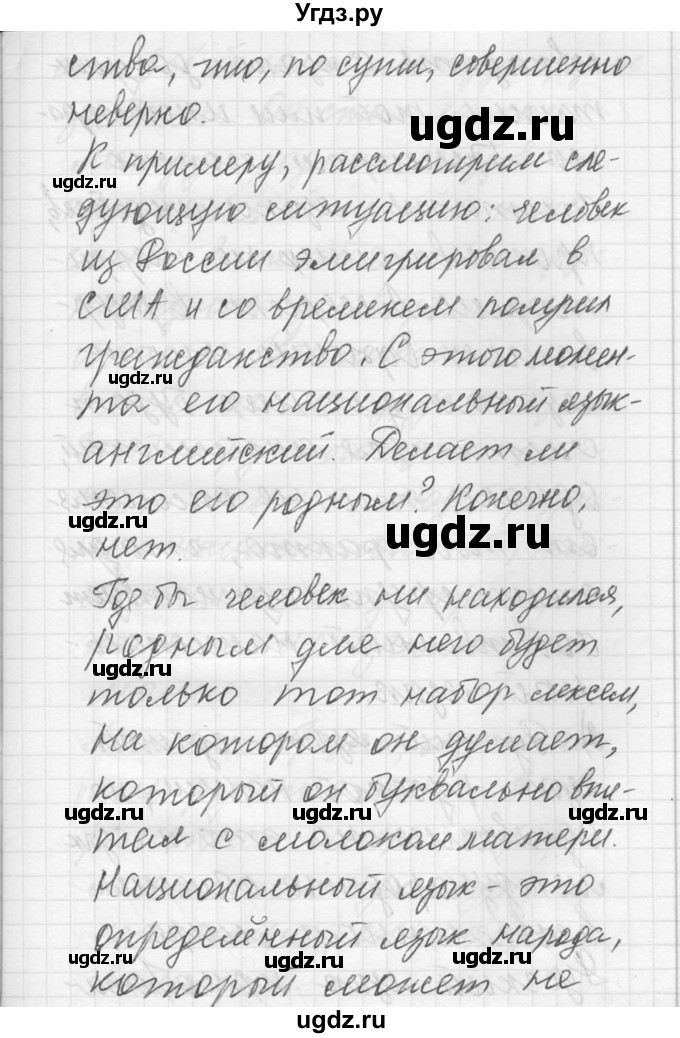 Угдз.ру
ства, что, по сути, совершенно
неверно.
ugdz.ru
К примеру, рассмотрим сле-
ugdz.ru
дующую ситуацию: человек
из России эмигрировал в
США и со временем получил
гражданство. С этого момен-
ugdz.ru
та его национальный язык -
английский. Делает ли
это его родным? Конечно,
ugdz.ru
ugdz.ru
нет.
Где бы человек ни находился,
родным для него будет
ugdz.ru
только тот набор лексем,
на котором он думает,
который он буквально впи-
ugdz.ru ugdz.ru ugdz.ru
тал с молоком матери.
Национальный язык - это
определённый язык народа,
ugdz.ru ugdz.ru ugdz.ru
который может не
ugdz.ru